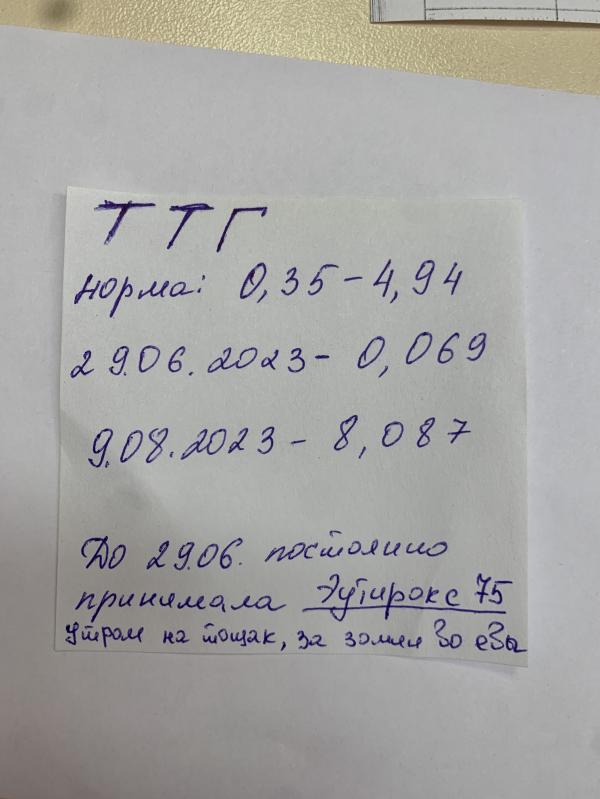 ТТГ
норма: 0,35-4,94
29.06.2023- 0,069
9.08.2023 - 8,087
До 29.06. постоянно
принимала Эутирокс 75
Утром на тощак, за 30мин до еды